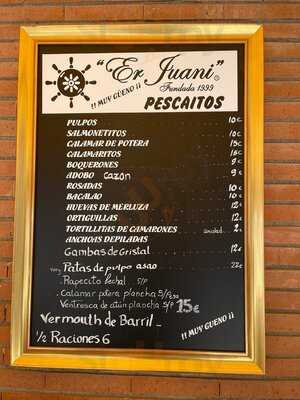 "Er Juani"
Fundada 1999
¡¡ MUY GÜENO ¡¡
PESCAITOS
PULPOS 10€
SALMONETITOS 10€
CALAMAR DE POTERA 15€
CALAMARITOS 16€
BOQUERONES 9€
ADOBO CAZON 9€
ROSADAS 10€
BACALAO 10€
HUEVAS DE MERLUZA 12€
ORTIGUILLAS 12€
TORTILLITAS DE CAMARONES unidad 2€
ANCHOAS DEPILADAS
Gambas de Cristal 12€
Patas de pulpo asao 22€
Rapecito Fechal S/P
Calamar potera plancha S/Peso
Ventresca de atún plancha S/P 15€
Vermouth de Barril
¡¡ MUY GUENO ¡¡
1/2 Raciones 6